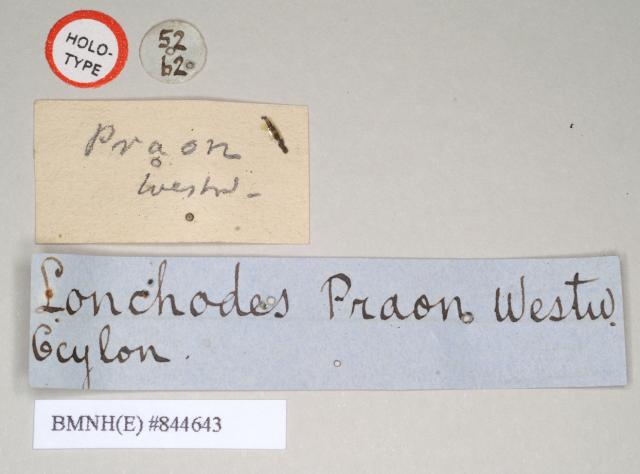 HOLO-
TYPE
52
62
Praon
Westw.
Lonchodes Praon Westw.
Ceylon.
BMNH(E) #844643